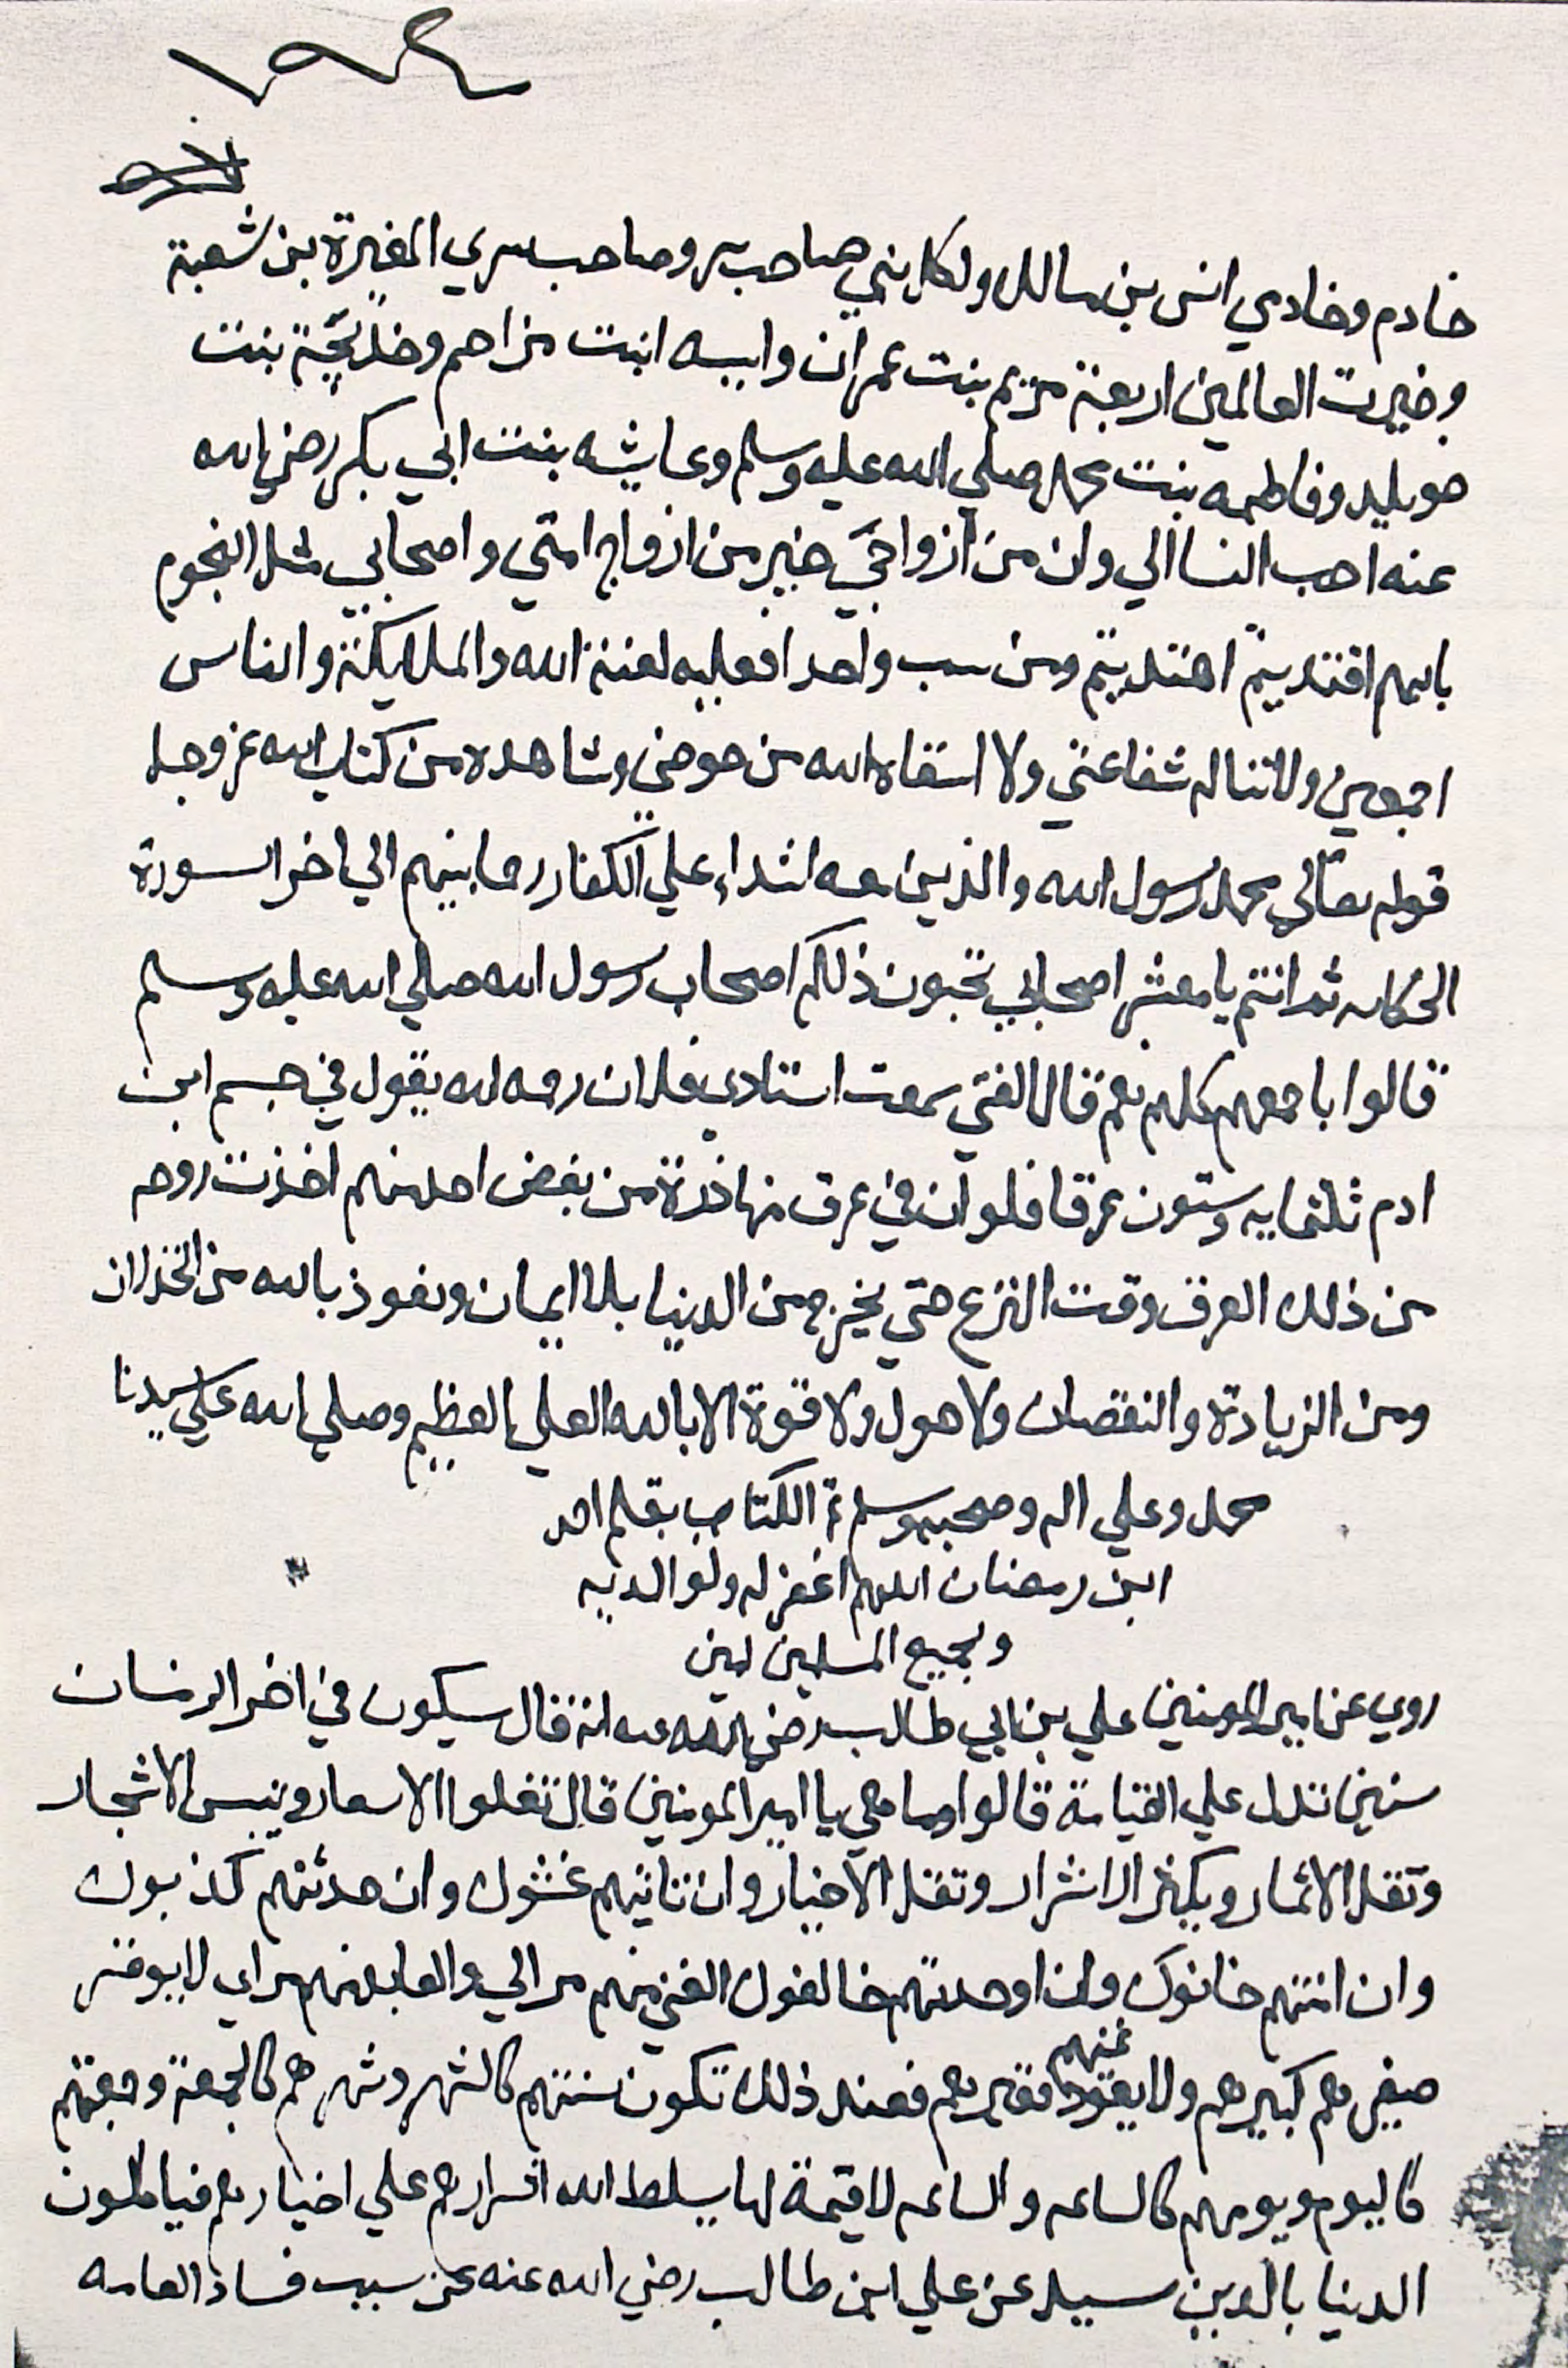 خادم وخادمي انس بن مالك ولكل نبي صاحب سر وصاحب سري المغيرة بن شعبة
وخيرت العالمين اربعة مريم بنت عمران واسيه ابنت مزاحم وخديجة بنت
خويليد وفاطمه بنت محمد صلي الله عليه وسلم وعايشه بنت ابي بكر رضي الله
عنه احب النسا الي وان من ازواجي خير من ازواج امتي واصحابي مثل النجوم
بايهم اقتديتم اهتديتم ومن سب واحدا فعليه لعنة الله والملايكة والناس
اجمعين ولا تناله شفاعتي ولا اسقاه الله من حوضي وشاهده من كتاب الله عز وجل
قوله تعالي محمد رسول الله والذين معه اشداء علي الكفار رحما بينهم الي اخر السورة
ثم انتم يا معشر اصحابي تحبون ذلكم اصحاب رسول الله صلي الله عليه وسلم
قالوا باجمعهم كلهم نعم قال الفتي سمعت استادي فلان رحمه الله يقول في جسم ابن
ادم ثلثمايه وستون عرقا فلو ان في عرق منها ذرة من بغض احد منهم اخذت روحه
من ذلك العرق وقت النزع حتي يخرج من الدنيا بلا ايمان ونعوذ بالله من الخذلان
ومن الزيادة والنقصان ولا حول ولا قوة الا بالله العلي العظيم وصلي الله علي سيدنا
محمد وعلي اله وصحبه وسلم تم الكتاب بقلم احمد
ابن رمضان اللهم اغفر له ولوالديه
وبجميع المسلمين امين
روي عن امير المومنين علي بن ابي طالب رضي الله عنه انه قال سيكون في اخر الزمان
سنين تدل علي القيامة قالوا وما هي يا امير المومنين قال تغلوا الاسعار وتيبس الاشجار
وتقل الاثمار ويكثر الاشرار وتقل الاخيار وان تاتيهم غشوك وان حدثتهم كذبوك
وان امنتهم خانوك وان اوعدتهم خالفوك الغني منهم مرالي والعابد منهم مراي لا يوقر
صغيرهم كبيرهم ولا يعود غنيهم فقيرهم فعند ذلك تكون سنتهم كالشهر وشهرهم كالجمعة وجمعتهم
كاليوم ويومهم كالساعه والساعه لا قيمة لها يسلط الله اشرارهم علي اخيارهم فياكلون
الدنيا بالدين سيل عن علي ابن طالب رضي الله عنه عن سبب فساد العامه